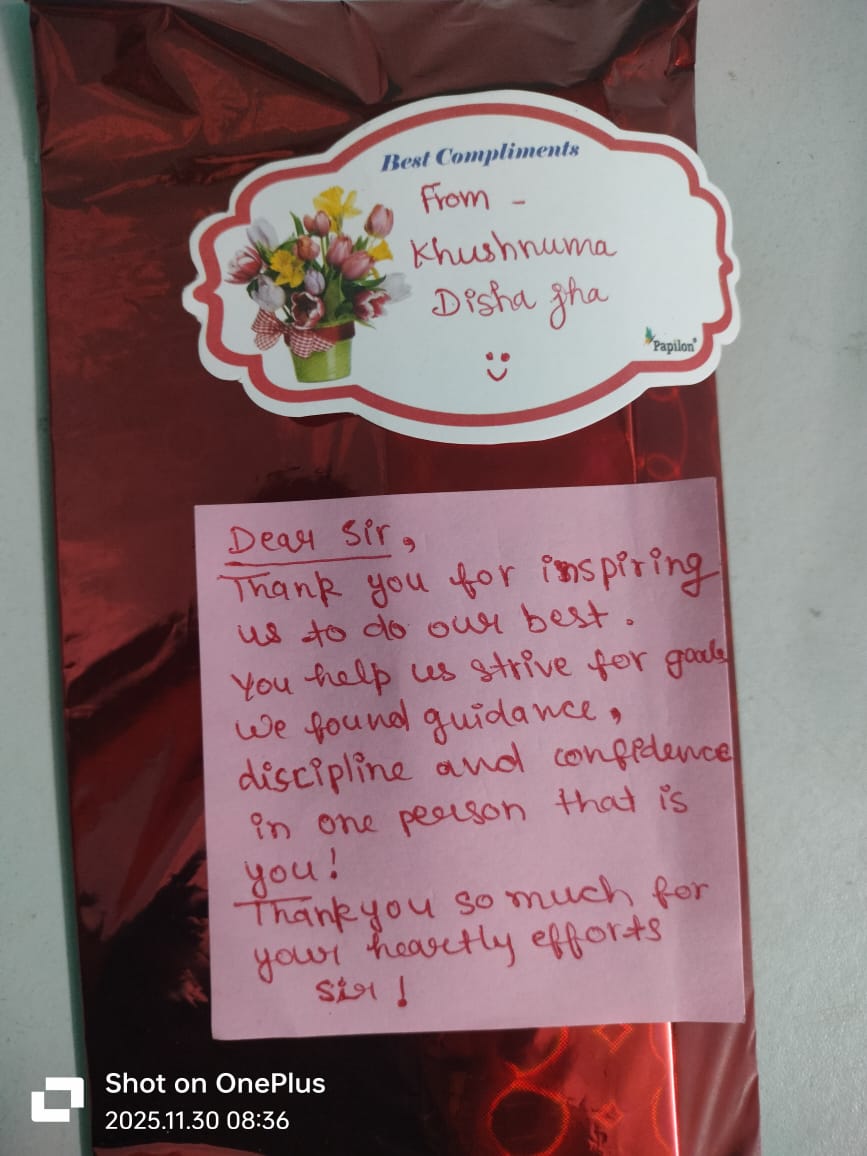 Best Compliments
From -
Khushnuma
Disha Jha
Papilon®
Dear Sir,
Thank you for inspiring
us to do our best.
You help us strive for goals
We found guidance,
discipline and confidence
in one person that is
you!
Thankyou so much for
your heartly efforts
Sir!
Shot on OnePlus
2025.11.30 08:36